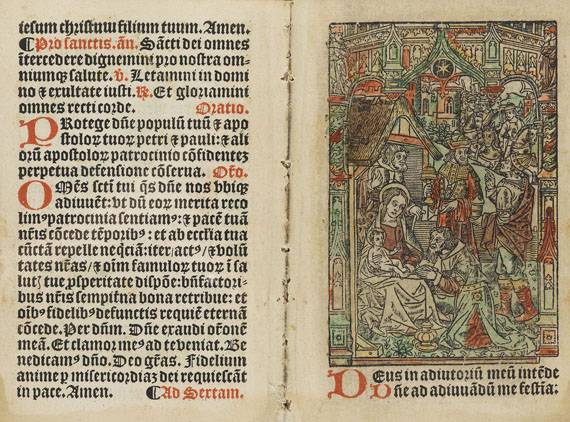 iesum christuū filium tuum. Amen.
¶ Pro sanctis. añ. Sācti dei omnes
ītercedere dignemini pro nostra om-
niumqꝫ salute. ℣. Letamini in domi
no ⁊ exultate iusti. ℟. Et gloriamini
omnes recti corde. Oratio.
PRotege dñe populū tuū ⁊ apo
stoloꝝ tuoꝝ petri ⁊ pauli: ⁊ ali
orū apostoloꝝ patrocinio cōfidentez
perpetua defensione cōserua. Oŕo.
OMēs sctī tui q̄s dñe nos vbiqꝫ
adiuuēt: vt dū eoꝝ merita reco
limꝰ patrocinia sentiamꝰ: ⁊ pacē tuā
nr̄is cōcede tēporibꝰ: et ab ecclia tua
cūctā repelle neq̄tiā: iter actꝰ ⁊ volū
tates nr̄as ⁊ oīm famuloꝝ tuoꝝ ī sa
luť tue ꝓsperitate dispōe: bn̄factori-
bus nr̄is sempitīna bona retribue: et
oībꝰ fidelibꝰ defunctis requiē eternā
cōcede. Per dūm. Dn̄e exaudi orōnē
meā. Et clamor meꝰ ad te veniat. Be
nedicamꝰ dño. Deo gr̄as. Fidelium
anime ꝑ misericordiaz dei requiescāt
in pace. Amen. ¶ Ad Sextam.
DEus in adiutoriū meū intēde
Dñe ad adiuuādū me festia: